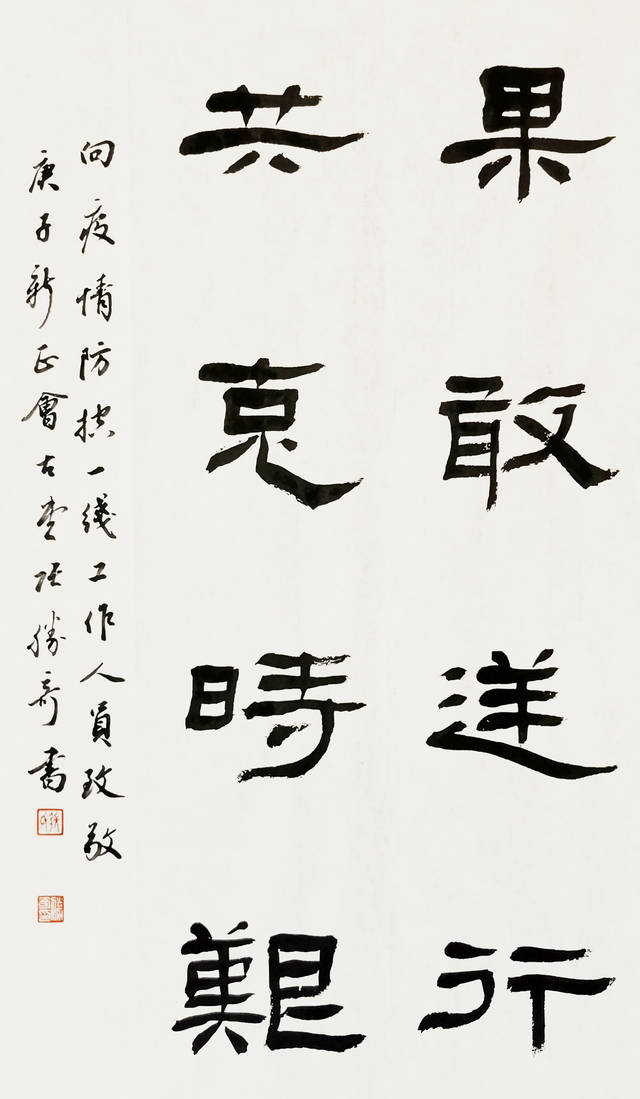 果敢逆行
共克時艱
向疫情防控一綫工作人員致敬
庚子新正會古堂張勝奇書